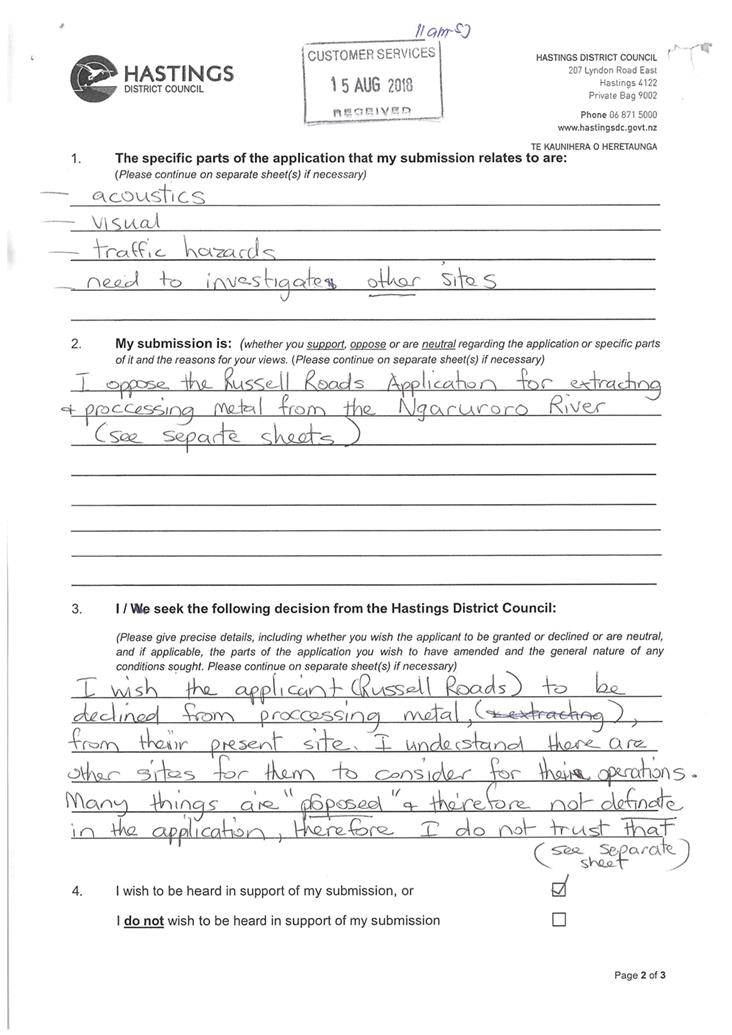 11am SJ
HASTINGS
DISTRICT COUNCIL
CUSTOMER SERVICES
15 AUG 2018
RECEIVED
HASTINGS DISTRICT COUNCIL
207 Lyndon Road East
Hastings 4122
Private Bag 9002
Phone 06 871 5000
www.hastingsdc.govt.nz
TE KAUNIHERA O HERETAUNGA
1. The specific parts of the application that my submission relates to are:
(Please continue on separate sheet(s) if necessary)
— acoustics
— visual
— traffic hazards
— need to investigate other sites
2. My submission is: (whether you support, oppose or are neutral regarding the application or specific parts
of it and the reasons for your views. (Please continue on separate sheet(s) if necessary)
I oppose the Russell Roads Application for extracting
& proccessing metal from the Ngaruroro River
(see separte sheets)
3. I / We seek the following decision from the Hastings District Council:
(Please give precise details, including whether you wish the applicant to be granted or declined or are neutral,
and if applicable, the parts of the application you wish to have amended and the general nature of any
conditions sought. Please continue on separate sheet(s) if necessary)
I wish the applicant (Russell Roads) to be
declined from proccessing metal, (& extracting),
from their present site. I understand there are
other sites for them to consider for their operations.
Many things are "poposed" & therefore not definate
in the application, therefore I do not trust that
(see separate
sheet)
4. I wish to be heard in support of my submission, or
I do not wish to be heard in support of my submission
Page 2 of 3